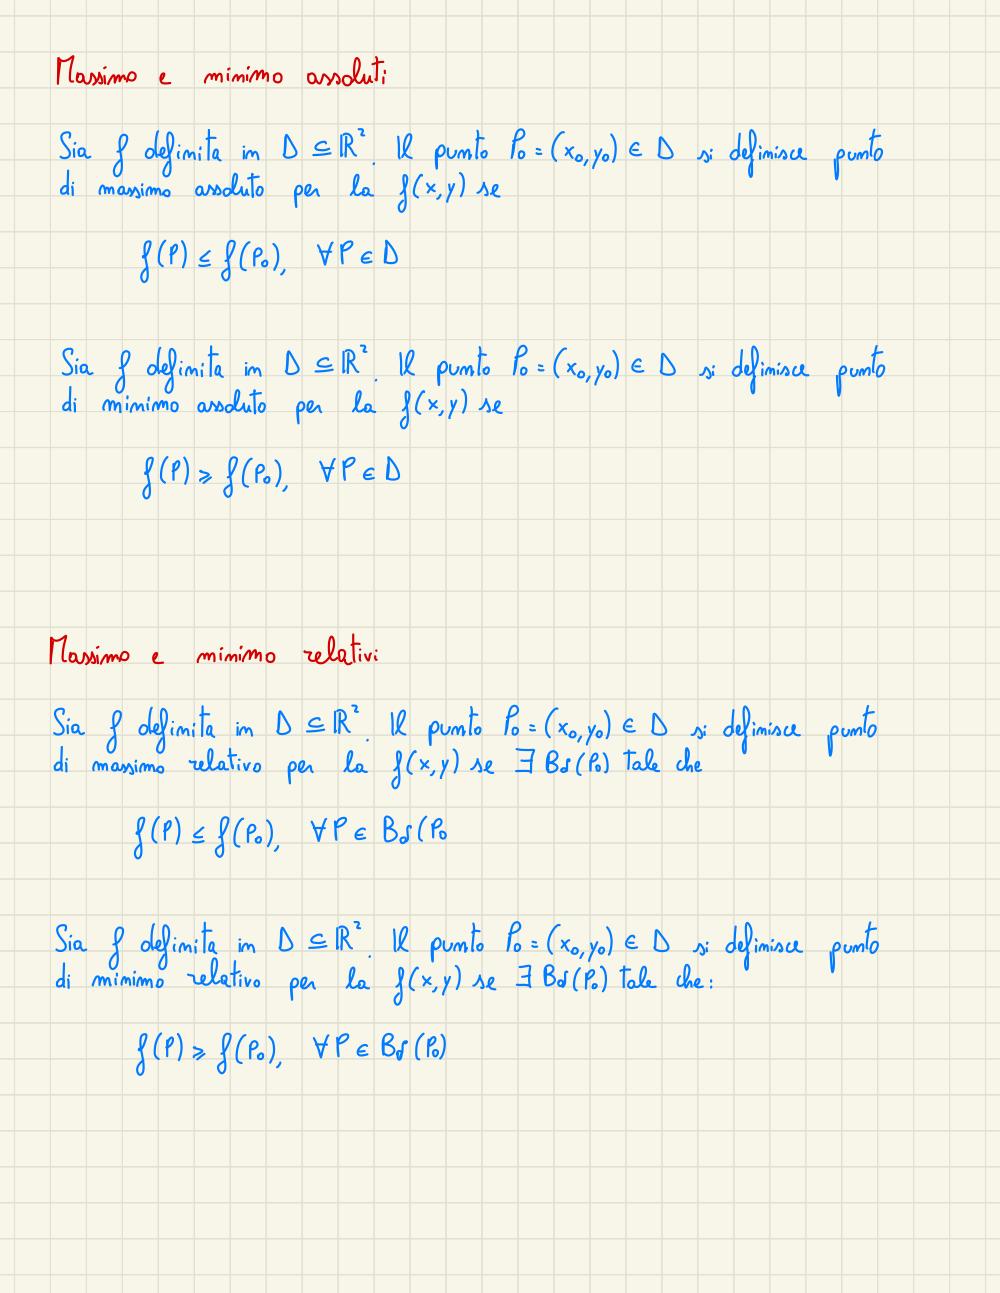 Massimo e minimo assoluti
Sia f definita in D ⊆ ℝ². Il punto P₀ = (x₀, y₀) ∈ D si definisce punto
di massimo assoluto per la f(x,y) se
f(P) ≤ f(P₀), ∀P ∈ D
Sia f definita in D ⊆ ℝ². Il punto P₀ = (x₀, y₀) ∈ D si definisce punto
di minimo assoluto per la f(x,y) se
f(P) ⩾ f(P₀), ∀P ∈ D
Massimo e minimo relativi
Sia f definita in D ⊆ ℝ². Il punto P₀ = (x₀, y₀) ∈ D si definisce punto
di massimo relativo per la f(x,y) se ∃ Bδ(P₀) tale che
f(P) ≤ f(P₀), ∀P ∈ Bδ(P₀
Sia f definita in D ⊆ ℝ². Il punto P₀ = (x₀, y₀) ∈ D si definisce punto
di minimo relativo per la f(x,y) se ∃ Bδ(P₀) tale che:
f(P) ⩾ f(P₀), ∀P ∈ Bδ(P₀)